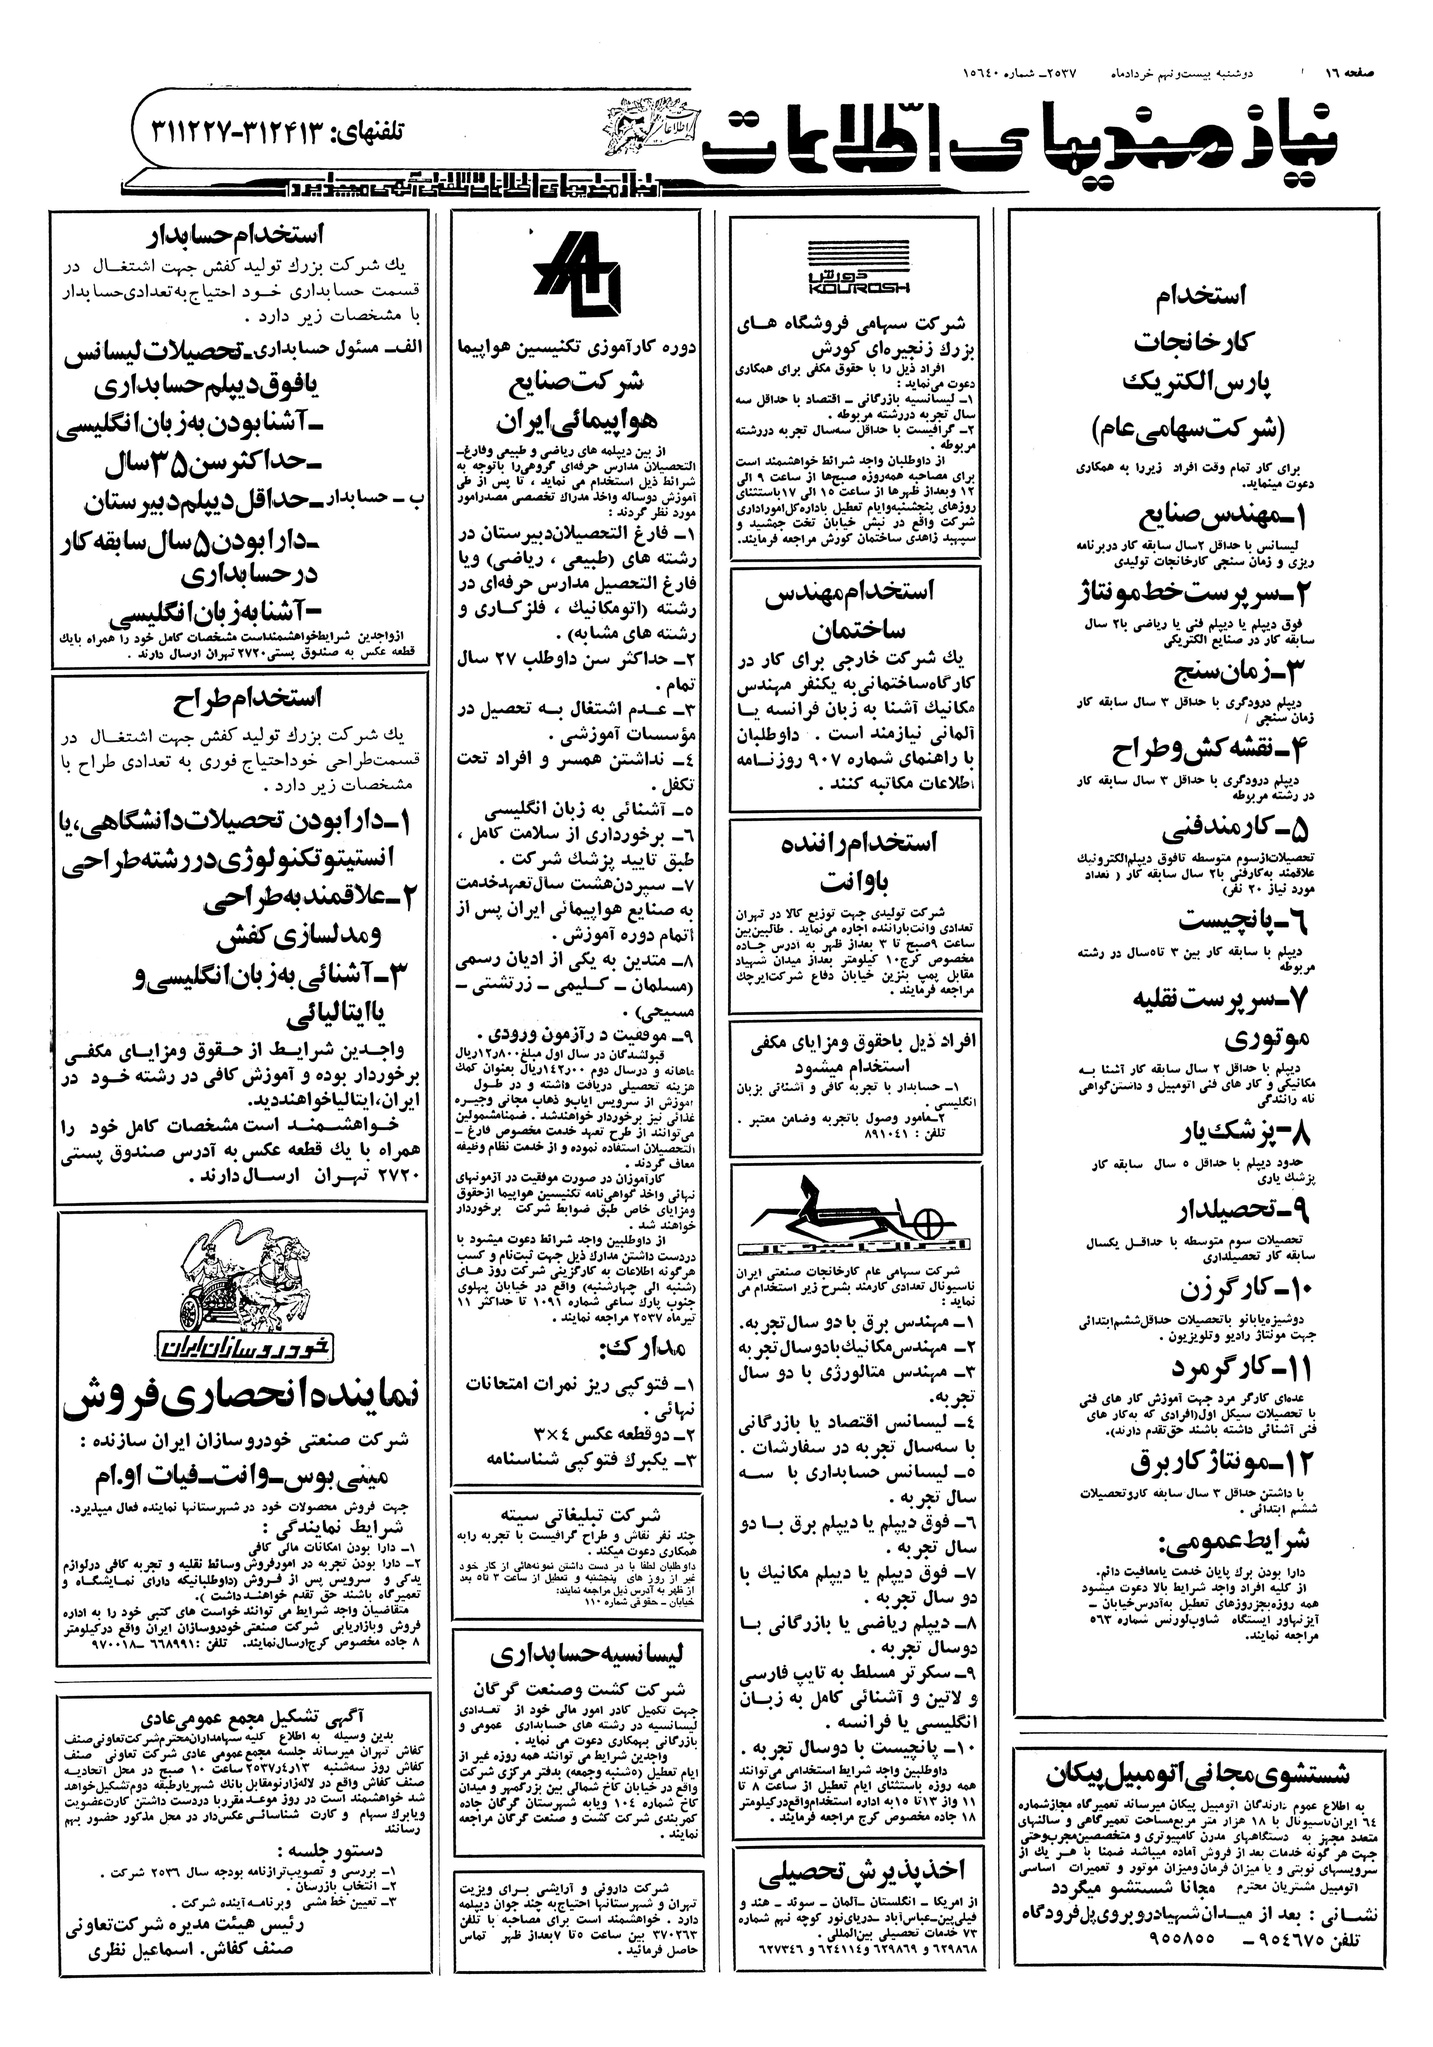 صفحه ۱۶
دوشنبه بیست‌ونهم خردادماه ۲۵۳۷ـ شماره ۱۵۶۴۰
نیازمندیهای اطلاعات
تلفنهای: ۳۱۲۴۱۳-۳۱۱۲۲۷
نیازمندیهای اطلاعات تلفنی آگهی میپذیرد
استخدام
کارخانجات
پارس الکتریک
(شرکت سهامی عام)
برای کار تمام وقت افراد زیررا به همکاری
دعوت مینماید.
۱ـ مهندس صنایع
لیسانس با حداقل ۲سال سابقه کار دربرنامه
ریزی و زمان سنجی کارخانجات تولیدی
۲ـ سرپرست خط مونتاژ
فوق دیپلم یا دیپلم فنی یا ریاضی با۲ سال
سابقه کار در صنایع الکتریکی
۳ـ زمان سنج
دیپلم درودگری با حداقل ۳ سال سابقه کار
زمان سنجی
۴ـ نقشه‌کش وطراح
دیپلم درودگری با حداقل ۳ سال سابقه کار
در رشته مربوطه
۵ـ کارمندفنی
تحصیلات‌ازسوم متوسطه تافوق دیپلم‌الکترونیک
علاقمند به‌کارفنی با۲ سال سابقه کار ( تعداد
مورد نیاز ۲۰ نفر)
۶ـ پانچیست
دیپلم با سابقه کار بین ۳ تا۵سال در رشته
مربوطه
۷ـ سرپرست نقلیه
موتوری
دیپلم با حداقل ۲ سال سابقه کار آشنا به
مکانیکی و کار های فنی اتومبیل و داشتن‌گواهی
نامه رانندگی
۸ـ پزشک‌یار
حدود دیپلم با حداقل ۵ سال سابقه کار
پزشک یاری
۹ـ تحصیلدار
تحصیلات سوم متوسطه با حداقل یکسال
سابقه کار تحصیلداری
۱۰ـ کارگرزن
دوشیزه‌یابانو باتحصیلات حداقل‌ششم‌ابتدائی
جهت مونتاژ رادیو وتلویزیون .
۱۱ـ کارگرمرد
عده‌ای کارگر مرد جهت آموزش کار های فنی
با تحصیلات سیکل اول(افرادی که به‌کار های
فنی آشنائی داشته باشند حق‌تقدم دارند).
۱۲ـ مونتاژکاربرق
با داشتن حداقل ۳ سال سابقه کاروتحصیلات
ششم ابتدائی .
شرایط عمومی:
دارا بودن برگ پایان خدمت یامعافیت دائم.
از کلیه افراد واجد شرایط بالا دعوت میشود
همه روزه‌بجزروزهای تعطیل به‌آدرس‌خیابان ـ
آیزنهاور ایستگاه شاوب‌لورنس شماره ۵۶۳
مراجعه نمایند.
شستشوی مجانی اتومبیل پیکان
به اطلاع عموم دارندگان اتومبیل پیکان میرساند تعمیرگاه مجازشماره
۶۴ ایران‌ناسیونال با ۱۸ هزار متر مربع‌مساحت تعمیرگاهی و سالنهای
متعدد مجهز به دستگاههای مدرن کامپیوتری و متخصصین‌مجرب‌وحتی
جهت هر گونه خدمات بعد از فروش آماده میباشد ضمنا با هر یک از
سرویسهای نوبتی و یا میزان فرمان ومیزان موتور و تعمیرات اساسی
اتومبیل مشتریان محترم مجانا شستشو میگردد
نشانی : بعد از میدان شهیادروبروی پل فرودگاه
تلفن ۹۵۴۶۷۵ ـ ۹۵۵۸۵۵
کورش
KOUROSH
شرکت سهامی فروشگاه های
بزرگ زنجیره‌ای کورش
افراد ذیل را با حقوق مکفی برای همکاری
دعوت می‌نماید :
۱ـ لیسانسیه بازرگانی ـ اقتصاد با حداقل سه
سال تجربه دررشته مربوطه .
۲ـ گرافیست با حداقل سه‌سال تجربه دررشته
مربوطه .
از داوطلبان واجد شرائط خواهشمند است
برای مصاحبه همه‌روزه صبح‌ها از ساعت ۹ الی
۱۲ وبعداز ظهرها از ساعت ۱۵ الی ۱۷باستثنای
روزهای پنجشنبه‌وایام تعطیل باداره‌کل‌اموراداری
شرکت واقع در نبش خیابان تخت جمشید و
سپهبد زاهدی ساختمان کورش مراجعه فرمایند.
استخدام مهندس
ساختمان
یک شرکت خارجی برای کار در
کارگاه ساختمانی به یکنفر مهندس
مکانیک آشنا به زبان فرانسه یا
آلمانی نیازمند است . داوطلبان
با راهنمای شماره ۹۰۷ روزنامه
اطلاعات مکاتبه کنند .
استخدام راننده
باوانت
شرکت تولیدی جهت توزیع کالا در تهران
تعدادی وانت‌باراننده اجاره می‌نماید . طالبین‌بین
ساعت ۹صبح تا ۳ بعداز ظهر به آدرس جاده
مخصوص کرج۱۰ کیلومتر بعداز میدان شهیاد
مقابل پمپ بنزین خیابان دفاع شرکت‌ایرچک
مراجعه فرمایند .
افراد ذیل باحقوق ومزایای مکفی
استخدام میشود
۱ـ حسابدار با تجربه کافی و آشنائی بزبان
انگلیسی .
۲ـ مامور وصول باتجربه وضامن معتبر .
تلفن : ۸۹۱۰۴۱
ایران ناسیونال
شرکت سهامی عام کارخانجات صنعتی ایران
ناسیونال تعدادی کارمند بشرح زیر استخدام می
نماید :
۱ـ مهندس برق با دو سال تجربه.
۲ـ مهندس مکانیک بادوسال تجربه
۳ـ مهندس متالورژی با دو سال
تجربه.
۴ـ لیسانس اقتصاد یا بازرگانی
با سه‌سال تجربه در سفارشات .
۵ـ لیسانس حسابداری با سه
سال تجربه .
۶ـ فوق دیپلم یا دیپلم برق با دو
سال تجربه .
۷ـ فوق دیپلم یا دیپلم مکانیک با
دو سال تجربه .
۸ـ دیپلم ریاضی یا بازرگانی با
دوسال تجربه .
۹ـ سکرتر مسلط به تایپ فارسی
و لاتین و آشنائی کامل به زبان
انگلیسی یا فرانسه .
۱۰ـ پانچیست با دوسال تجربه .
داوطلبین واجد شرایط استخدامی می‌توانند
همه روزه باستثنای ایام تعطیل از ساعت ۸ تا
۱۱ واز ۱۳ تا ۱۵ به اداره استخدام‌واقع‌درکیلومتر
۱۸ جاده مخصوص کرج مراجعه فرمایند .
اخذپذیرش تحصیلی
از امریکا ـ انگلستان ـ آلمان ـ سوئد ـ هند و
فیلی‌پین‌ـ‌عباس‌آباد ـ دریای‌نور کوچه نهم شماره
۷۳ خدمات تحصیلی بین‌المللی .
۶۲۹۸۶۸ و ۶۲۹۸۶۹ و ۶۲۴۱۱۴ و ۶۲۷۳۴۶
دوره کارآموزی تکنیسین هواپیما
شرکت صنایع
هواپیمائی ایران
از بین دیپلمه های ریاضی و طبیعی وفارغ‌ـ
التحصیلان مدارس حرفه‌ای گروهی‌را باتوجه به
شرائط ذیل استخدام می نماید ، تا پس از طی
آموزش دوساله واخذ مدراک تخصصی مصدرامور
مورد نظر گردند :
۱ـ فارغ التحصیلان‌دبیرستان در
رشته های (طبیعی ، ریاضی) ویا
فارغ التحصیل مدارس حرفه‌ای در
رشته (اتومکانیک ، فلزکاری و
رشته های مشابه) .
۲ـ حداکثر سن داوطلب ۲۷ سال
تمام .
۳ـ عدم اشتغال به تحصیل در
مؤسسات آموزشی .
۴ـ نداشتن همسر و افراد تحت
تکفل .
۵ـ آشنائی به زبان انگلیسی
۶ـ برخورداری از سلامت کامل ،
طبق تایید پزشک شرکت .
۷ـ سپردن‌هشت سال‌تعهدخدمت
به صنایع هواپیمائی ایران پس از
اتمام دوره آموزش .
۸ـ متدین به یکی از ادیان رسمی
(مسلمان ـ کلیمی ـ زرتشتی ـ
مسیحی) .
۹ـ موفقیت درآزمون ورودی .
قبولشدگان در سال اول مبلغ۱۲٫۸۰۰ریال
ماهانه و درسال دوم ۱۴۲۰۰ریال بعنوان کمک
هزینه تحصیلی دریافت داشته و در طول
آموزش از سرویس ایاب‌و ذهاب مجانی وجیره
غذائی نیز برخوردار خواهندشد . ضمنامشمولین
می‌توانند از طرح تعهد خدمت مخصوص فارغ ـ
التحصیلان استفاده نموده و از خدمت نظام وظیفه
معاف گردند .
کارآموزان در صورت موفقیت در آزمونهای
نهائی واخذ گواهی‌نامه تکنیسین هواپیما ازحقوق
ومزایای خاص طبق ضوابط شرکت برخوردار
خواهند شد .
از داوطلبین واجد شرائط دعوت میشود با
دردست داشتن مدارک ذیل جهت ثبت‌نام و کسب
هرگونه اطلاعات به کارگزینی شرکت روز های
(شنبه الی چهارشنبه) واقع در خیابان پهلوی
جنوب پارک ساعی شماره ۱۰۹۱ تا حداکثر ۱۱
تیرماه ۲۵۳۷ مراجعه نمایند .
مدارک:
۱ـ فتوکپی ریز نمرات امتحانات
نهائی .
۲ـ دوقطعه عکس ۴×۳
۳ـ یکبرگ فتوکپی شناسنامه
شرکت تبلیغاتی سیته
چند نفر نقاش و طراح گرافیست با تجربه رابه
همکاری دعوت میکند .
داوطلبان لطفا با در دست داشتن نمونه‌هائی از کار خود
غیر از روز های پنجشنبه و تعطیل از ساعت ۳ تا۵ بعد
از ظهر به آدرس ذیل مراجعه نمایند:
خیابان ـ حقوقی شماره ۱۱۰
لیسانسیه حسابداری
شرکت کشت وصنعت گرگان
جهت تکمیل کادر امور مالی خود از تعدادی
لیسانسیه در رشته های حسابداری عمومی و
بازرگانی بهمکاری دعوت می نماید .
واجدین شرایط می توانند همه روزه غیر از
ایام تعطیل (۵شنبه وجمعه) بدفتر مرکزی شرکت
واقع در خیابان کاخ شمالی بین بزرگمهر و میدان
کاخ شماره ۱۰۴ ویابه شهرستان گرگان جاده
کمربندی شرکت کشت و صنعت گرگان مراجعه
نمایند .
شرکت داروئی و آرایشی برای ویزیت
تهران و شهرستانها احتیاج به چند جوان دیپلمه
دارد . خواهشمند است برای مصاحبه با تلفن
۳۷۰۲۶۳ بین ساعت ۵ تا ۷بعداز ظهر تماس
حاصل فرمائید .
استخدام حسابدار
یک شرکت بزرگ تولید کفش جهت اشتغال در
قسمت حسابداری خود احتیاج به‌تعدادی‌حسابدار
با مشخصات زیر دارد .
الف‌ـ مسئول حسابداری‌ـ تحصیلات لیسانس
یافوق دیپلم حسابداری
ـ آشنابودن به زبان انگلیسی
ـ حداکثر سن ۳۵ سال
ب ـ حسابدار ـ حداقل دیپلم دبیرستان
ـ دارابودن ۵ سال سابقه کار
در حسابداری
ـ آشنابه زبان انگلیسی
ازواجدین شرایط‌خواهشمنداست مشخصات کامل خود را همراه بایک
قطعه عکس به صندوق پستی ۲۷۲۰ تهران ارسال دارند .
استخدام طراح
یک شرکت بزرگ تولید کفش جهت اشتغال در
قسمت‌طراحی خوداحتیاج فوری به تعدادی طراح با
مشخصات زیر دارد .
۱ـ دارابودن تحصیلات دانشگاهی، یا
انستیتوتکنولوژی در رشته طراحی
۲ـ علاقمند به طراحی
ومدلسازی کفش
۳ـ آشنائی به زبان انگلیسی و
یاایتالیائی
واجدین شرایط از حقوق ومزایای مکفی
برخوردار بوده و آموزش کافی در رشته خود در
ایران،ایتالیاخواهنددید.
خواهشمند است مشخصات کامل خود را
همراه با یک قطعه عکس به آدرس صندوق پستی
۲۷۲۰ تهران ارسال دارند .
خودروسازان ایران
نماینده انحصاری فروش
شرکت صنعتی خودروسازان ایران سازنده :
مینی بوس‌ـ وانت‌ـ فیات او.ام
جهت فروش محصولات خود در شهرستانها نماینده فعال میپذیرد.
شرایط نمایندگی :
۱ـ دارا بودن امکانات مالی کافی
۲ـ دارا بودن تجربه در امورفروش وسائط نقلیه و تجربه کافی درلوازم
یدکی و سرویس پس از فروش (داوطلبانیکه دارای نمایشگاه و
تعمیرگاه باشند حق تقدم خواهند داشت ).
متقاضیان واجد شرایط می توانند خواست های کتبی خود را به اداره
فروش وبازاریابی شرکت صنعتی خودروسازان ایران واقع درکیلومتر
۸ جاده مخصوص کرج‌ارسال‌نمایند. تلفن :۶۶۸۹۹۱ ـ ۹۷۰۰۱۸
آگهی تشکیل مجمع عمومی عادی
بدین وسیله به اطلاع کلیه سهامداران‌محترم‌شرکت‌تعاونی‌صنف
کفاش تهران میرساند جلسه مجمع عمومی عادی شرکت تعاونی صنف
کفاش روز سه‌شنبه ۱۳ر۴ر۲۵۳۷ ساعت ۱۰ صبح در محل اتحادیه
صنف کفاش واقع در لاله‌زارنومقابل بانک شهریارطبقه دوم‌تشکیل‌خواهد
شد خواهشمند است در روز موعد مقرربا دردست داشتن کارت‌عضویت
ویابرگ سهام و کارت شناسائی عکس‌دار در محل مذکور حضور بهم
رسانند
دستور جلسه :
۱ـ بررسی و تصویب‌ترازنامه بودجه سال ۲۵۳۶ شرکت .
۲ـ انتخاب بازرسان .
۳ـ تعیین خط مشی وبرنامه آینده شرکت .
رئیس هیئت مدیره شرکت تعاونی
صنف کفاش. اسماعیل نظری